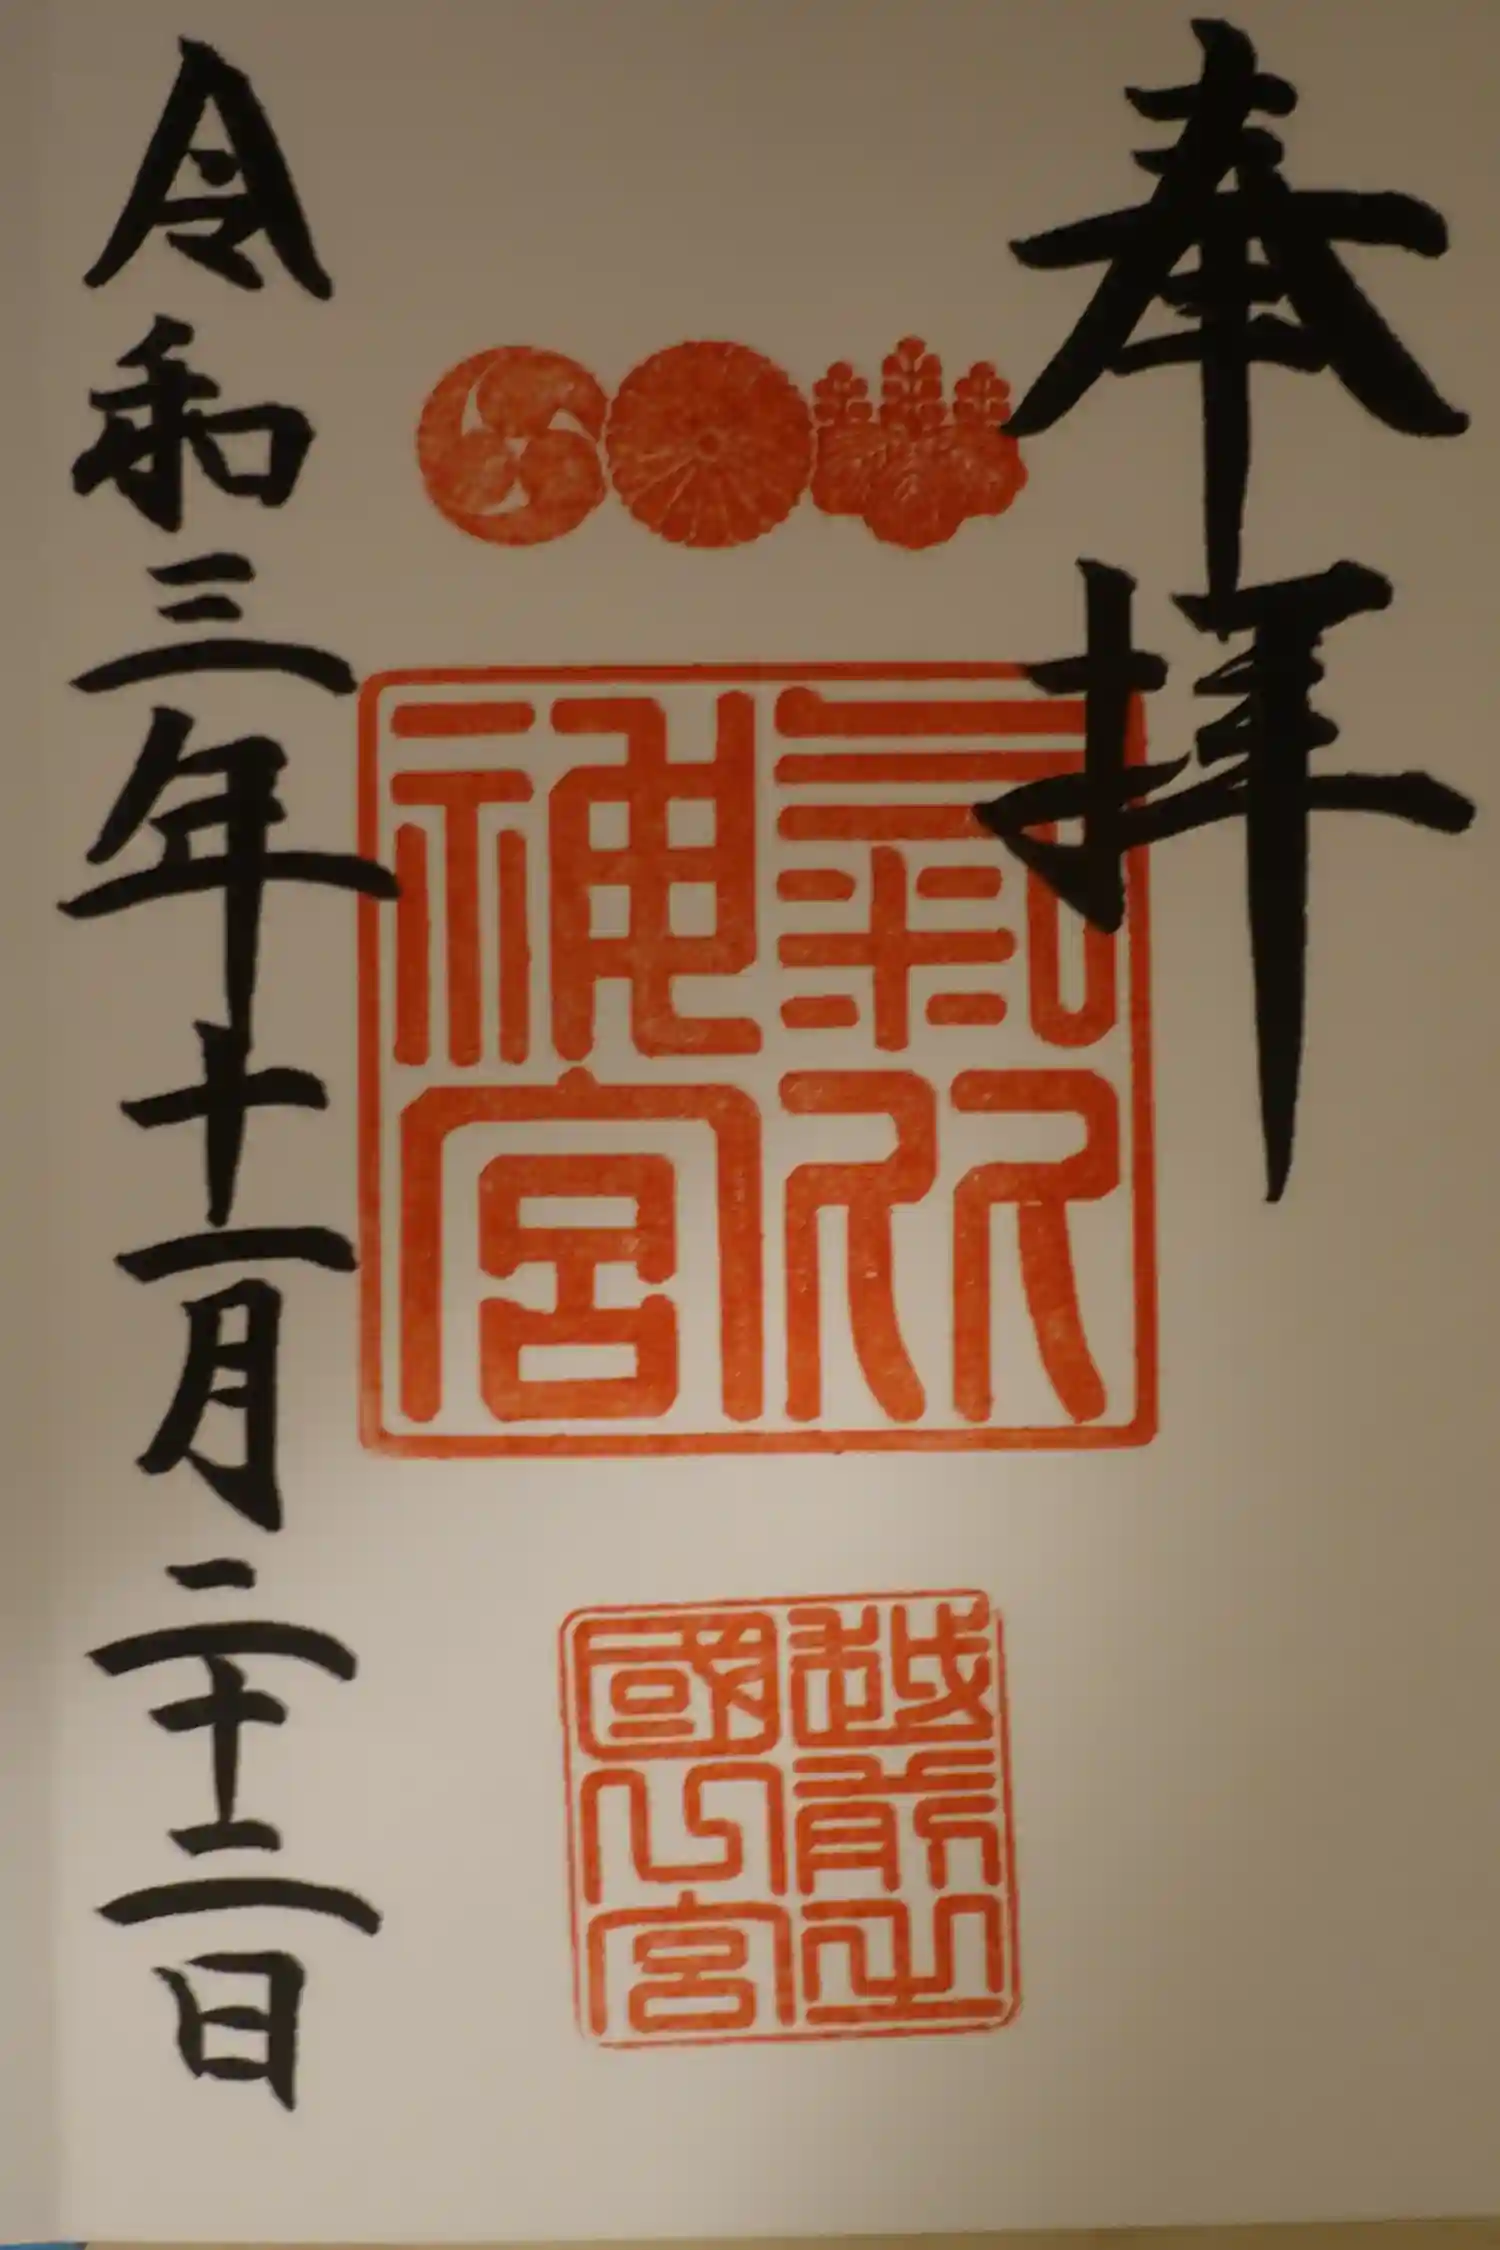 奉拝
氣比
神宮
越前之
國一宮
令和三年十一月二十二日